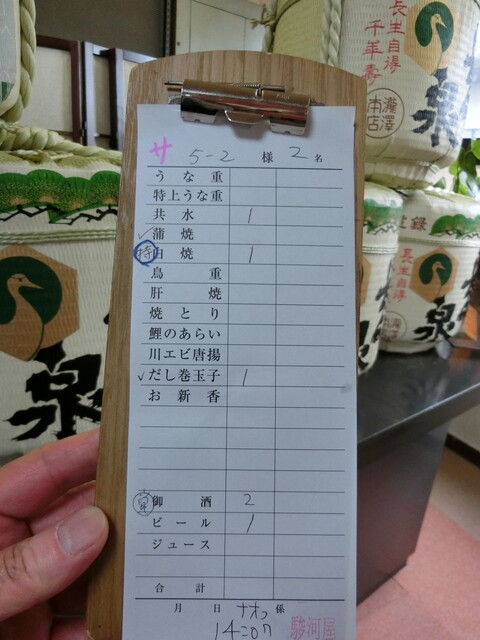 サ 5-2 様 2 名
うな重
特上うな重
共水 1
✓蒲焼
特白焼 1
鳥重
肝焼
焼とり
鯉のあらい
川エビ唐揚
✓だし巻玉子 1
お新香
御酒 2
ビール 1
ジュース
合計
月 日 係
14:07
駿河屋
長生自得
千年壽
瀧澤本店
泉
長生自得
泉
泉